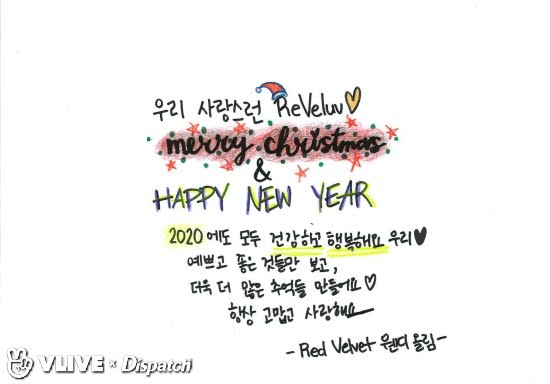 우리 사랑스런 ReVeluv♡
merry christmas
&
HAPPY NEW YEAR
2020에도 모두 건강하고 행복해요 우리♥
예쁘고 좋은 것들만 보고,
더욱 더 많은 추억들 만들어요♡
항상 고맙고 사랑해요
- Red Velvet 웬디 올림 -
VLIVE × Dispatch